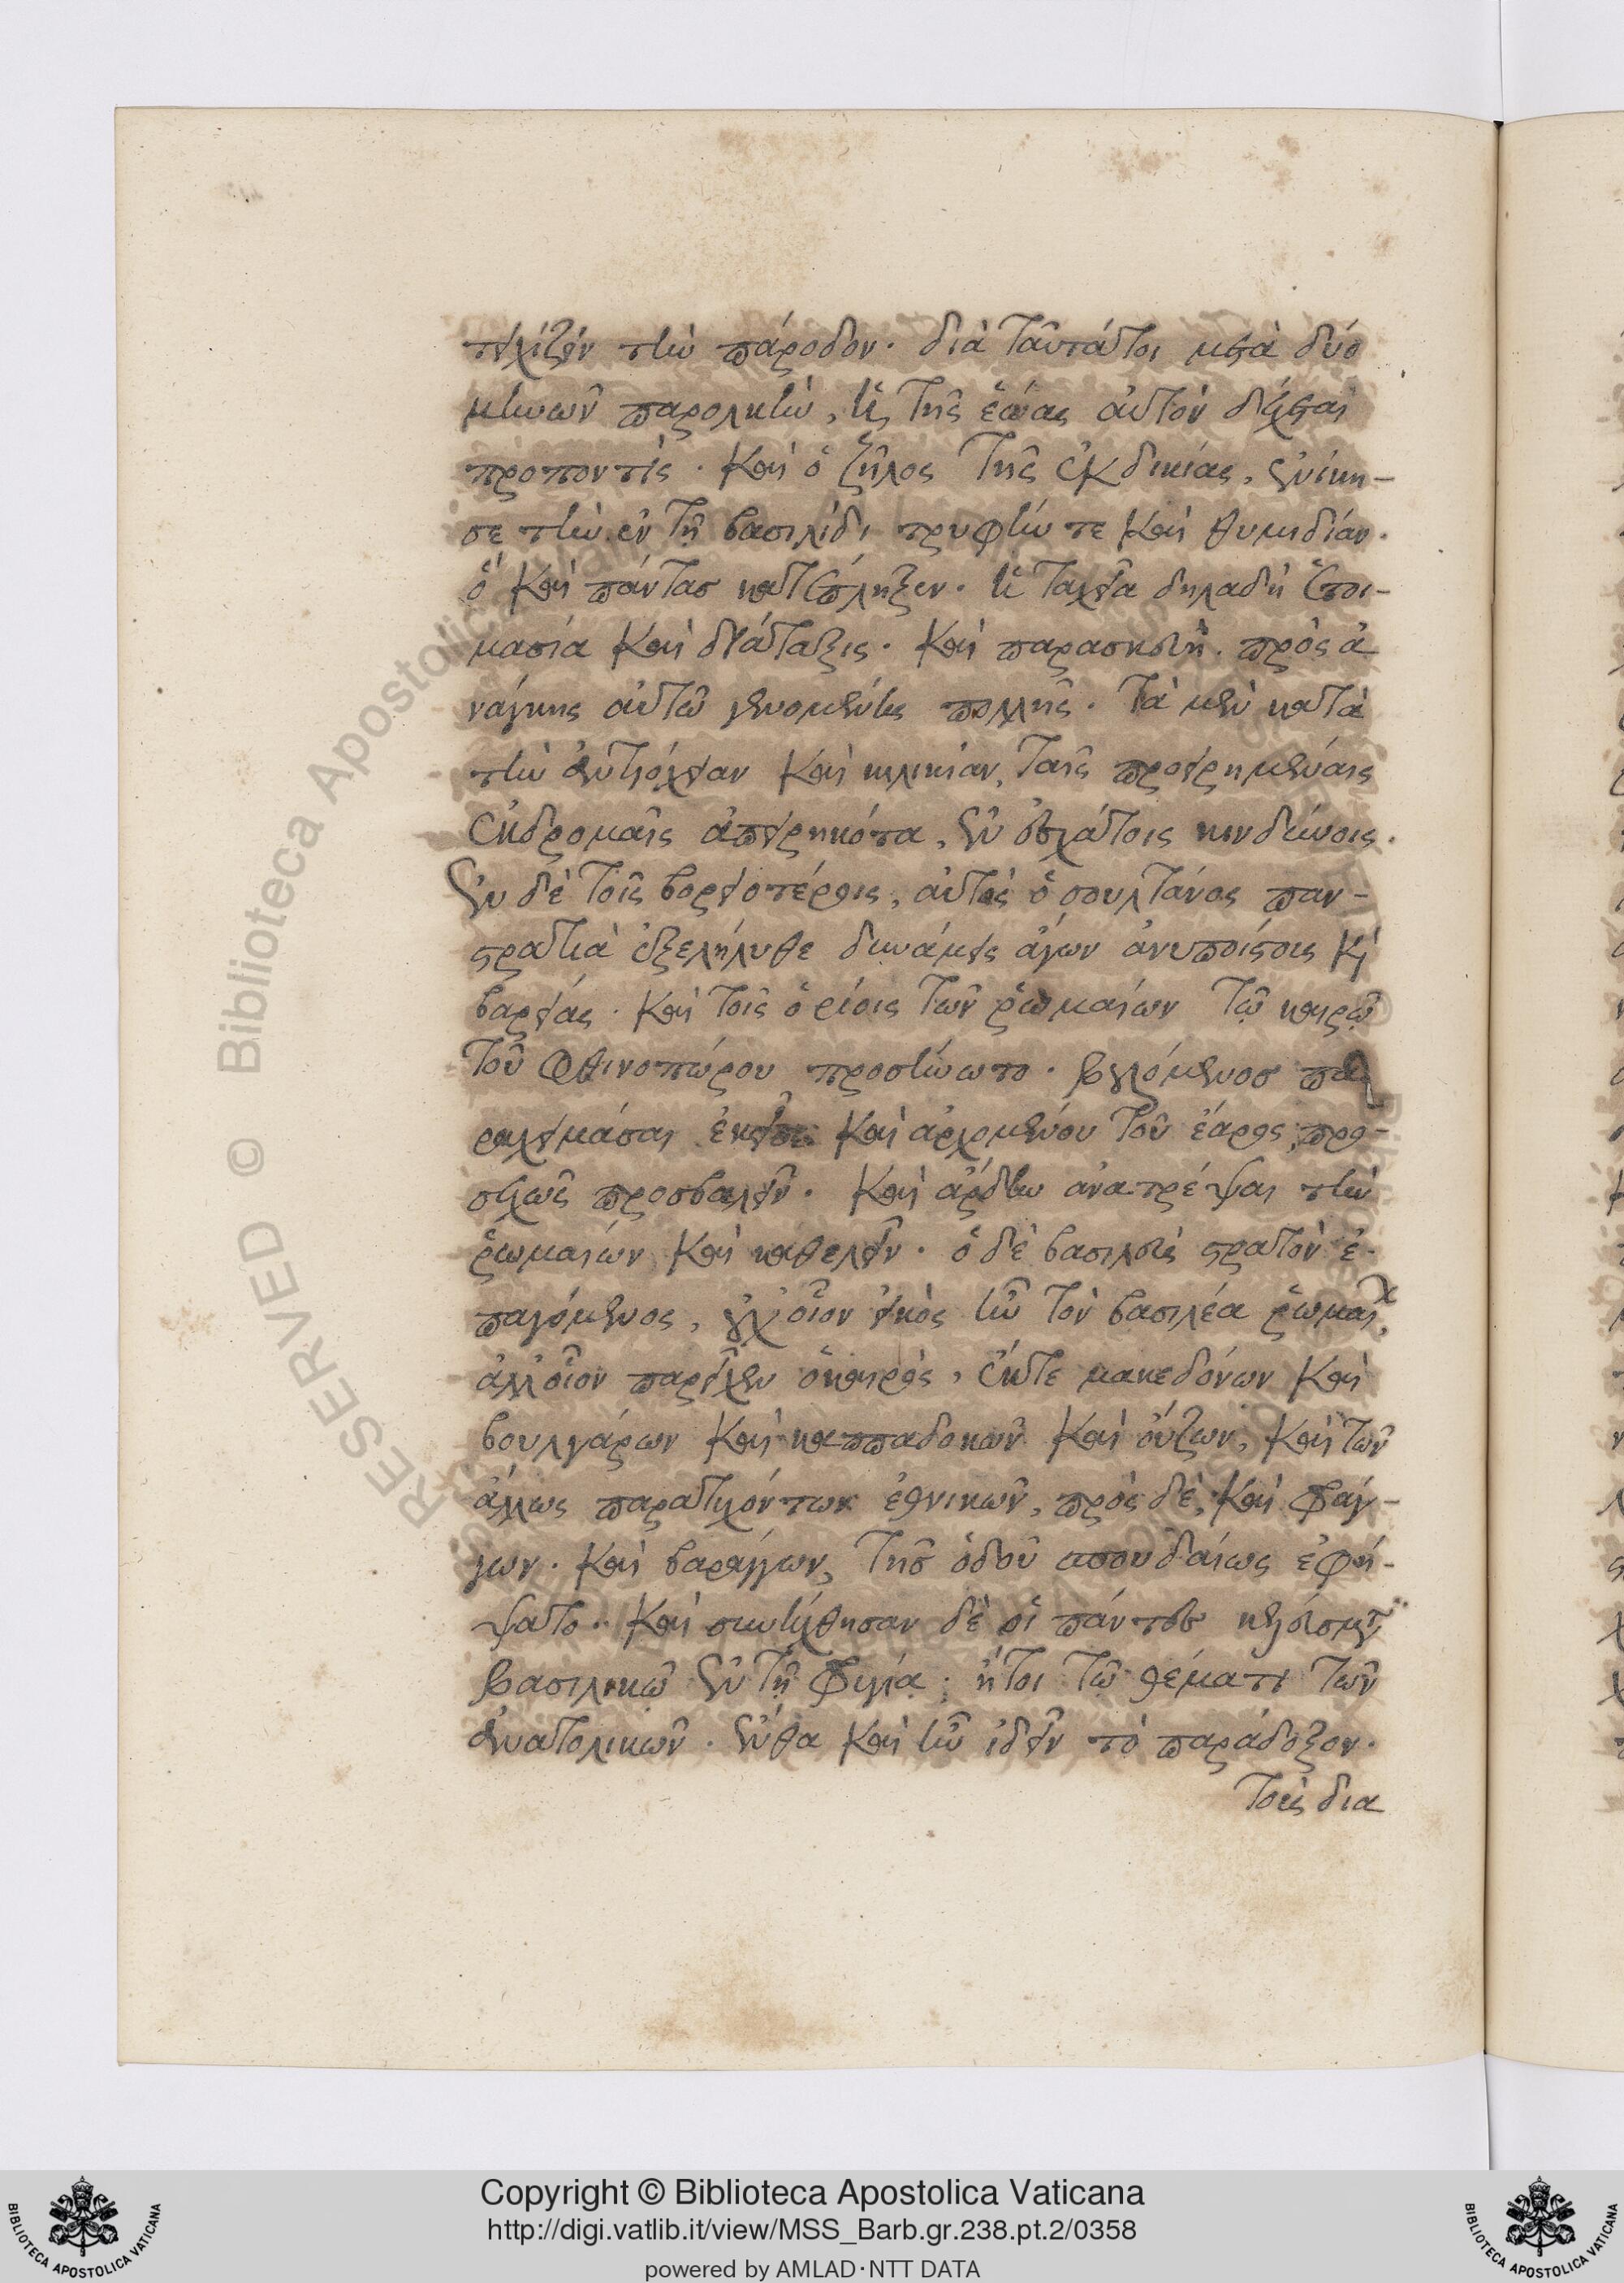 τειχίζειν τὴν πάροδον. διὰ ταῦτάτοι μετὰ δύο
μηνῶν παρολκὴν, ἡ τῆς ἑῴας αὐτὸν δέχεται
προποντίς. καὶ ὁ ζῆλος τῆς ἐκδικίας, ἐνίκη-
σε τὴν ἐν τῇ βασιλίδι τρυφήν τε καὶ θυμηδίαν.
ὃ καὶ πάντασ κατέπληξεν. ἡ ταχεῖα δηλαδὴ ἑτοι-
μασία καὶ διάταξις. καὶ παρασκευὴ. πρὸς ἀ
νάγκης αὐτῶ γενομένης πολλῆς. τὰ μὲν κατὰ
τὴν ἀντιόχειαν καὶ κιλικίαν, ταῖς προειρημέναις
ἐκδρομαῖς ἀπειρηκότα, ἐν ἐσχάτοις κινδύνοις.
ἐν δὲ τοῖς βορειοτέροις, αὐτὸς ὁ σουλτάνος παν-
στρατιὰ ἐξελήλυθε δυνάμεις ἄγων ἀνυποίστοις κὶ
βαρείας. καὶ τοῖς ὁρίοις τῶν ῥωμαίων τῷ καιρῷ
τοῦ φθινοπώρου προσήνωτο. βουλόμενοσ πα
ραχειμάσαι ἐκεῖσε καὶ ἀρχομένου τοῦ ἔαρος, προ-
σεχῶς προσβαλεῖν. καὶ ἄρδην ἀνατρέψαι τὴν
ῥωμαίων καὶ καθελεῖν. ὁ δὲ βασιλεὺς στρατὸν ἐ-
παγόμενος, οὐχ οἷον εἰκὸς ἦν τὸν βασιλέα ῥωμαί,
ἀλλ οἷον παρεῖχεν ὁ καιρὸς, ἔκτε μακεδόνων καὶ
βουλγάρων καὶ καππαδοκῶν καὶ οὔζων, καὶ τῶν
ἄλλως παρατυχόντων ἐθνικῶν, πρὸς δὲ, καὶ φάγ-
γων. καὶ βαράγγων, τῆσ ὁδοῦ σπουδαίως ἐφή-
ψατο. καὶ συνήχθησαν δὲ οἱ πάντες κελεύσματι
βασιλικῶ ἐν τῇ φυγία; ἤτοι τῷ θέματι τῶν
ἀνατολικῶν. ἔνθα καὶ ἦν ἰδεῖν τὸ παράδοξον.
τοὺς δια
Copyright © Biblioteca Apostolica Vaticana
http://digi.vatlib.it/view/MSS_Barb.gr.238.pt.2/0358
powered by AMLAD·NTT DATA